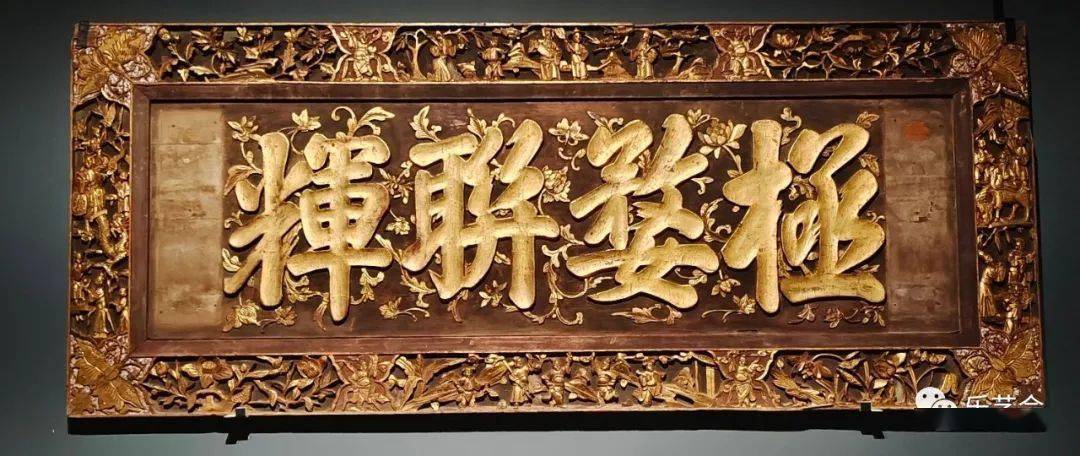 極婺聯輝
乐艺会